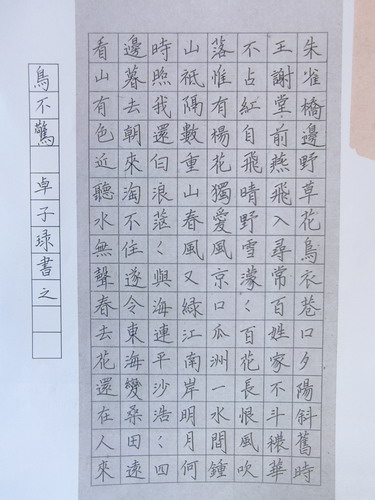 朱雀橋邊野草花鳥衣巷口夕陽斜舊時
王謝堂前燕飛入尋常百姓家不斗穠華
不占紅自飛晴野雪濛〱百花長恨風吹
落惟有楊花獨愛風京口瓜洲一水間鍾
山祗隔數重山春風又綠江南岸明月何
時照我還白浪茫〱與海連平沙浩〱四
邊暮去朝來淘不住遂令東海變桑田遠
看山有色近聽水無聲春去花還在人來
鳥不驚 卓子琭書之